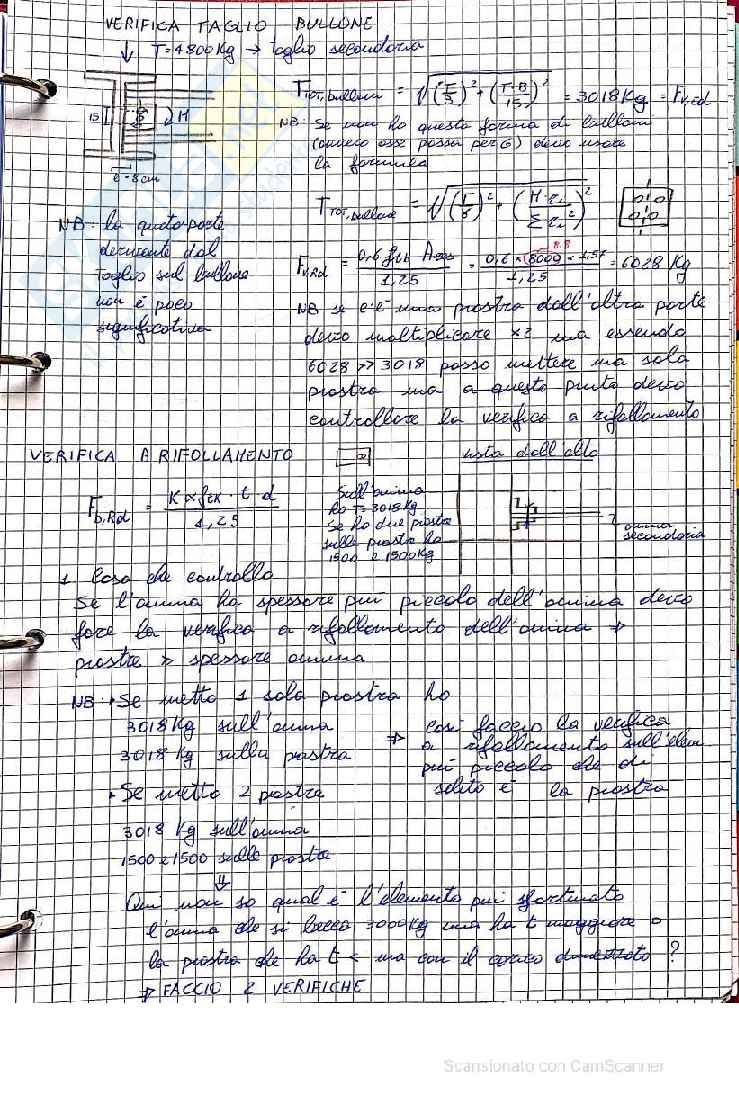 VERIFICA TAGLIO BULLONE
T=4800Kg → taglio secondaria
T TOT, bullone = √((T/3)² + (T·8/15)²) = 3018 Kg = Fv,Ed
NB: Se non ho questa forma di bulloni
(ovvero se passo per 6) devo usare
la formula
15
M
e=8cm
T TOT, bullone = √((T/6)² + (M·r1/∑ri²)²)
NB: la quota parte
derivante dal
taglio sul bullone
non è poco
significativa
Fv,Rd = 0,6 ftb Ares / 1,25 = 0,6 × 8000 × 1,57 / 1,25 = 6028 Kg
8.8
NB se c'è una piastra dall'altra parte
devo moltiplicare ×2 ma essendo
6028 >> 3018 posso mettere una sola
piastra ma a questo punto devo
controllare la verifica a rifollamento
VERIFICA A RIFOLLAMENTO
vista dall'alto
Fb,Rd = K α ftk · t · d / 1,25
Sull'anima
ho T=3018Kg
Se ho due piastre
sulla piastra ho
1500 e 1500Kg
anima
secondaria
1 Cosa che controllo
Se l'anima ha spessore più piccolo dell'anima devo
fare la verifica a rifollamento dell'anima →
piastre > spessore anima
NB: • Se metto 1 sola piastra ho
3018 Kg sull'anima
3018 Kg sulla piastra
⇒ così faccio la verifica
a rifollamento sull'elem.
più piccolo che di
solito è la piastra
• Se metto 2 piastre
3018 Kg sull'anima
1500 e 1500 sulle piastre
⇓
Qui non so qual è l'elemento più sfortunato
l'anima che si becca 3000Kg ma ha t maggiore o
la piastra che ha t < ma con il carico dimezzato ?
⇒ FACCIO 2 VERIFICHE
Scansionato con CamScanner